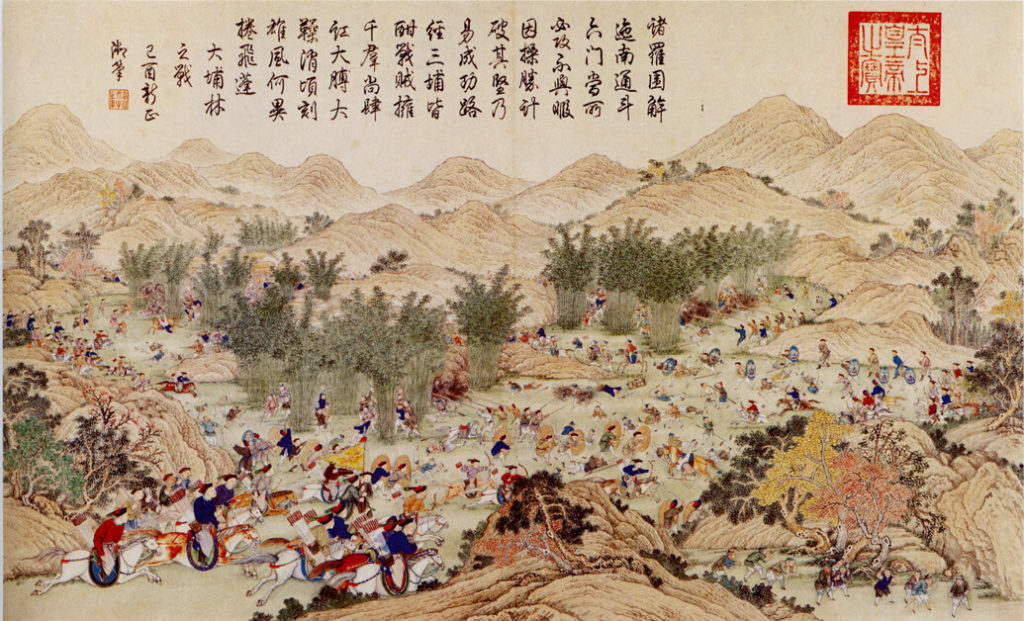 諸羅圍解
迤南通斗
六門當所
必攻不與暇
因操勝計
破其堅乃
易成功路
經三埔皆
酣戰賊擁
千羣尚肆
訌大膊大
消頃刻
雄風何異
捲飛蓬
大埔林
之戰
己酉新正
御筆
太上
皇帝
之寶